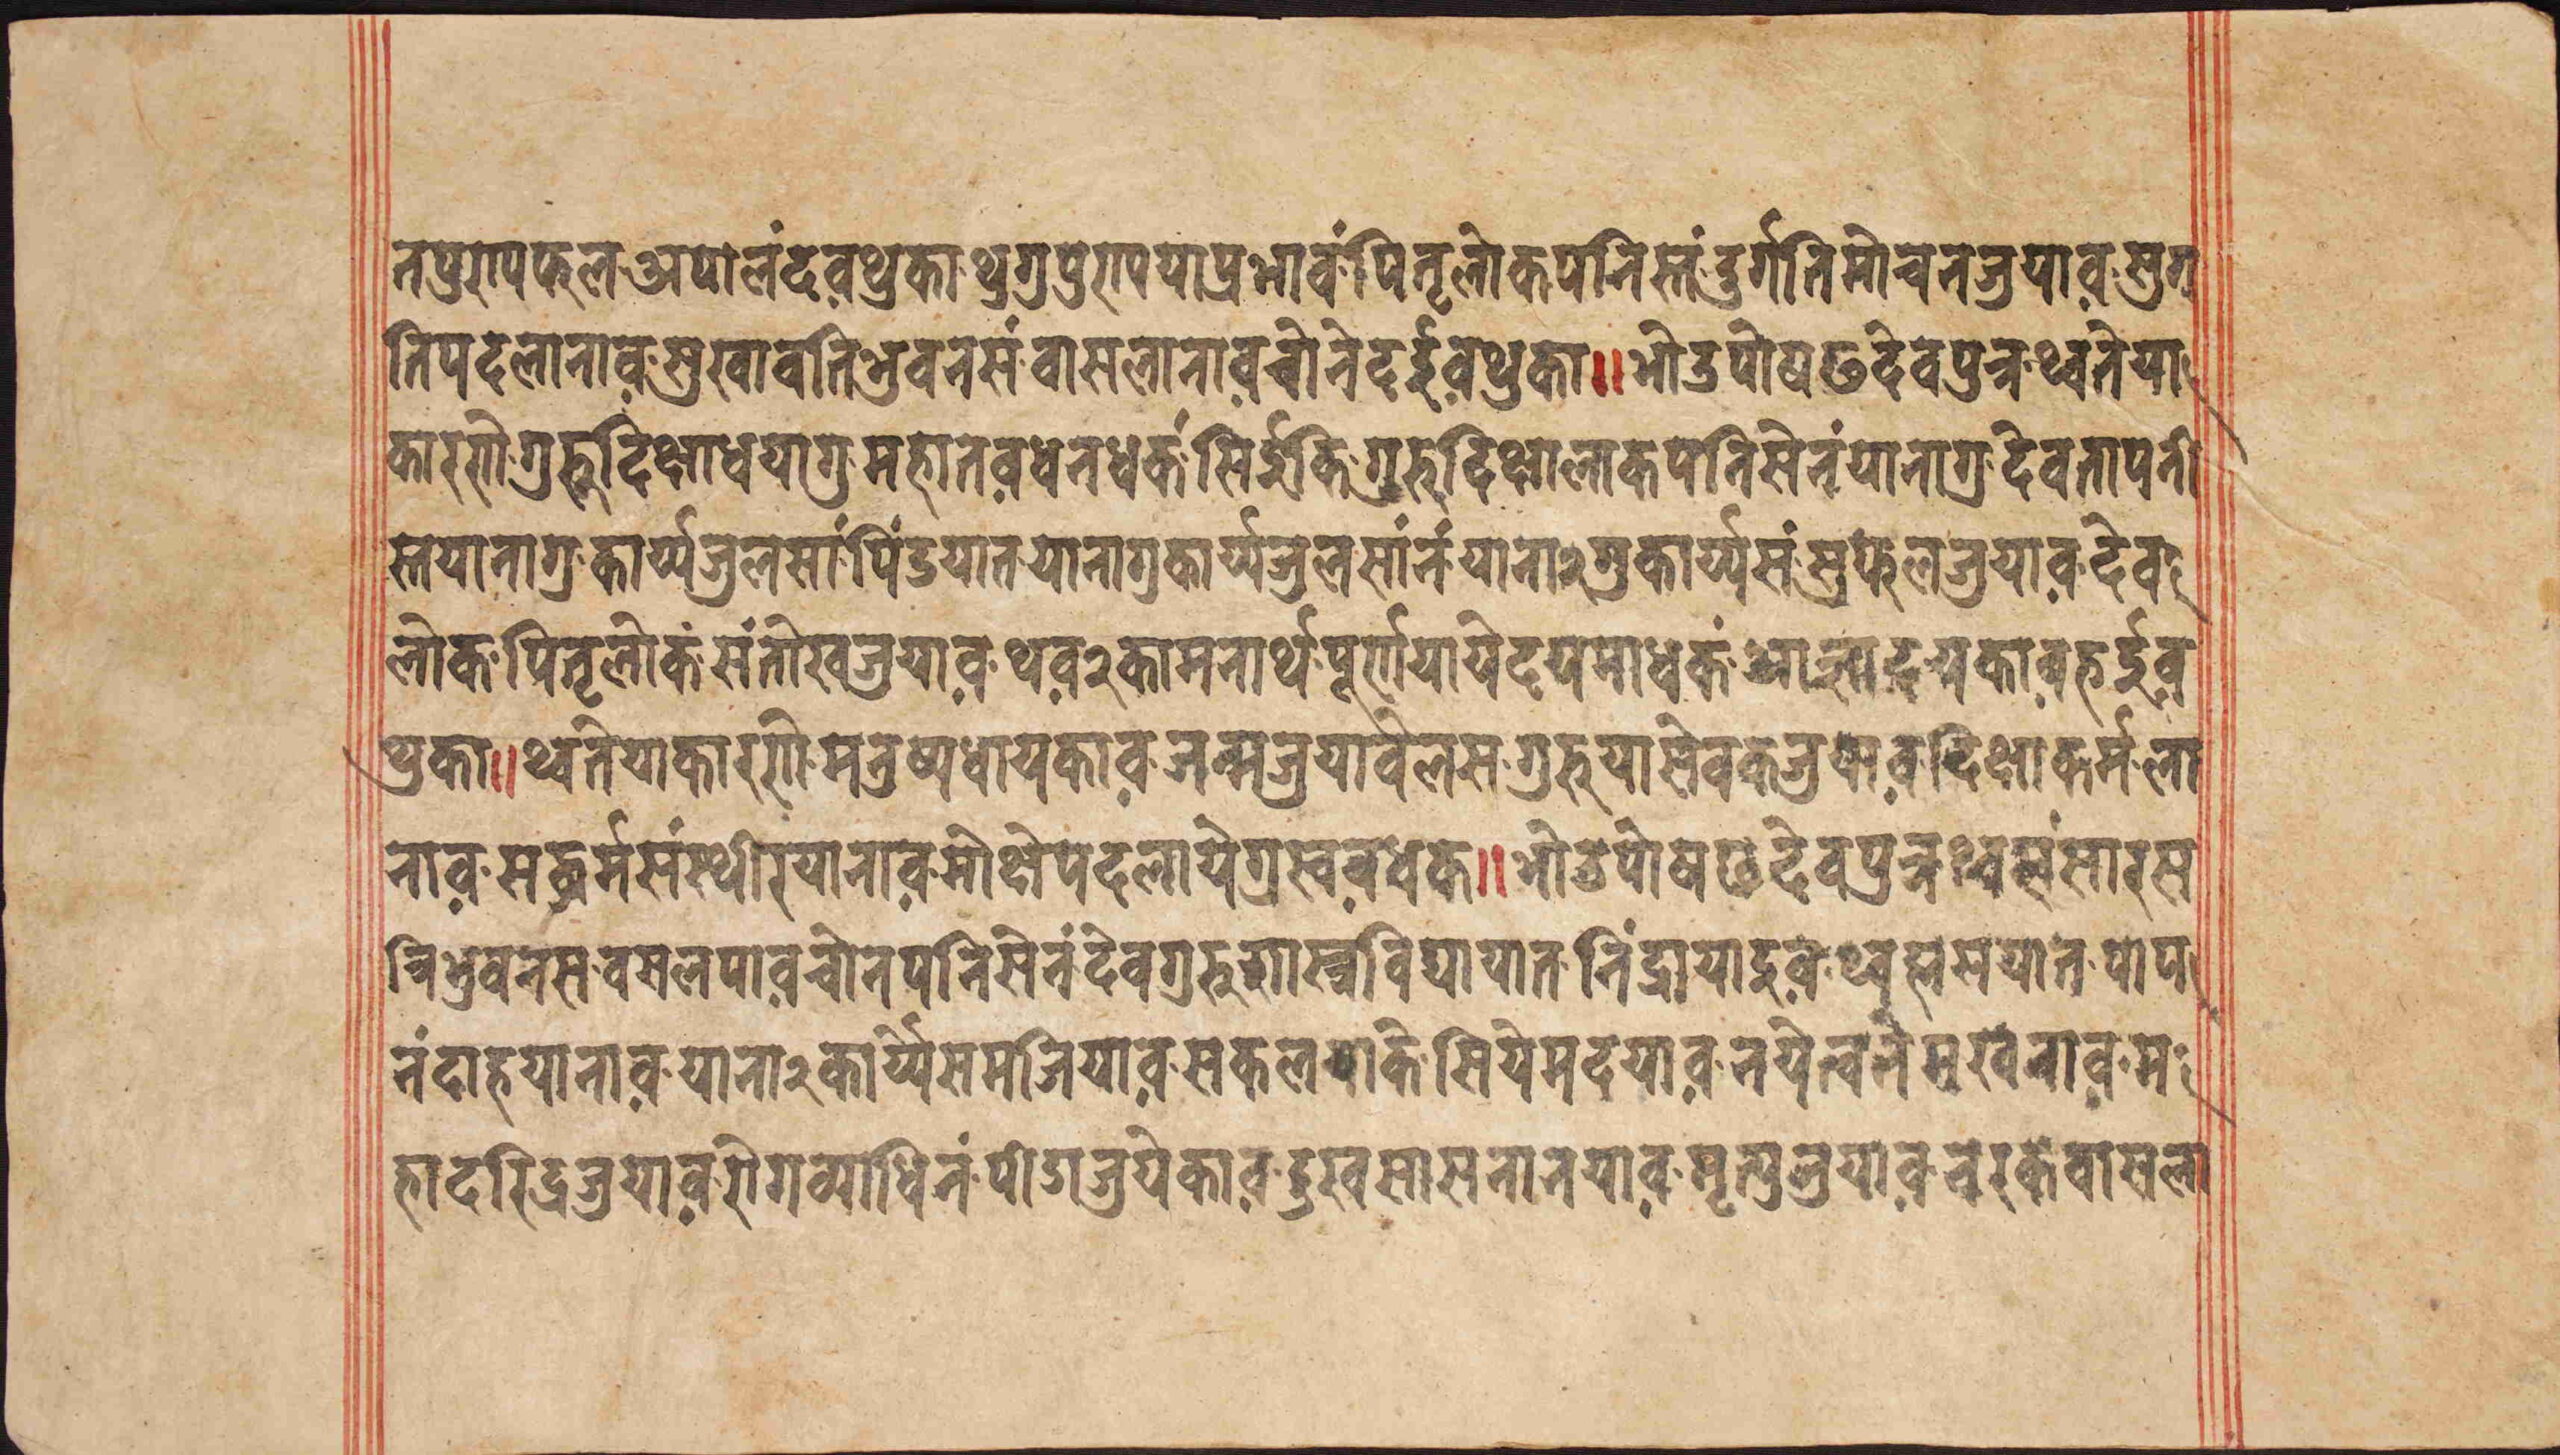 नपुण्यफल अपालंदव़थुका थुगुपुण्ययाप्रभावं पितृलोकपनिस्तंदुर्गतिमोचनजुयाव़ सुग
तिपदलानाव़ सुखावतिभुवनसं वासलानाव़चोनेदईव़थुका॥भोउपोषछदेवपुत्र थ्वतेया
कारणे गुरुदिक्षाधयागु महातव़धनधकंसिईकि गुरुदिक्षालाकपनिसेनंयानागु देवतापनी
स्तयानागु कार्य्यजुलसां पिंडयातयानागुकार्य्यजुलसांनंयाना२गुकार्य्यसंसुफलजुयाव़ देव
लोक पितृलोकं संतोखजुयाव़ थव़२कामनार्थपूर्णयायेदयमाधकं आज्ञादयकाव़हईव़
थुका॥थ्वतेयाकारणे मनुष्यधायकाव़ जन्मजुयावेलस गुरुयासेवकजुयाव़ दिक्षाकर्मला
नाव़ सद्धर्मसंस्थीरयानाव़ मोक्षेपदलायेगुस्वव़धक॥भोउपोषछदेवपुत्र थ्वसंसारस
त्रिभुवनस वसलपाव़चोनपनिसेनंदेवगुरुशास्त्रविद्यायात निंद्रायादुव़ थ्वह्मसयात पाप
नंदाहयानाव़ याना२कार्य्येसमजियाव़ सकलयाके सियेमदयाव़ नयेत्वनेमखनाव़ म
हादरिद्रजुयाव़ रोगव्याधिनं पीडाजुयेकाव़ दुखसासनानयाव़ मृत्युलुयाव़ नरकेवासला